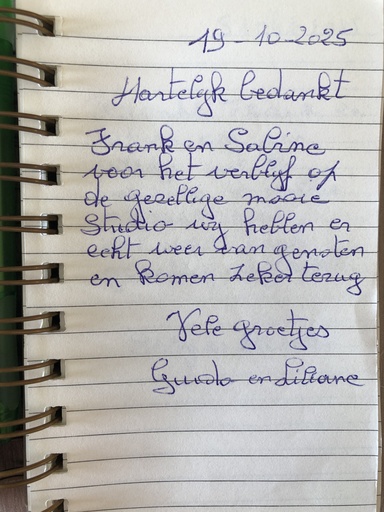 19-10-2025
Hartelyk bedankt
Frank en Sabine
voor het verblyf op
de gezellige mooie
Studio wy hebben er
echt weer van genoten
en komen zeker terug
Vele groetjes
Guido en Liliane